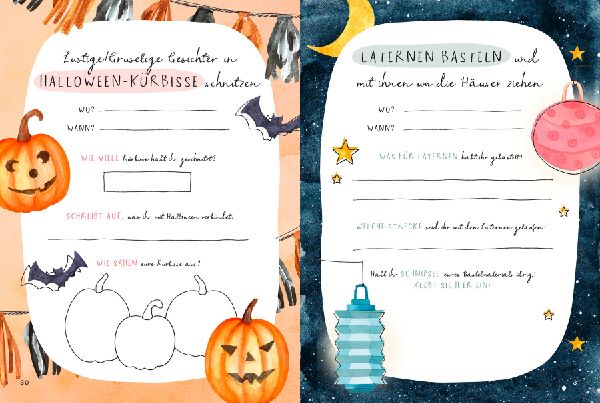 Lustige/Gruselige Gesichter in
HALLOWEEN-KÜRBISSE schnitzen
WO?
WANN?
WIE VIELE Kürbisse habt ihr geschnitzt?
SCHREIBT AUF, was ihr mit Halloween verbindet.
WIE SAHEN eure Kürbisse aus?
80
LATERNEN BASTELN und
mit ihnen um die Häuser ziehen
WO?
WANN?
WAS FÜR LATERNEN habt ihr gebastelt?
WELCHE STRECKE seid ihr mit den Laternen gelaufen?
Habt ihr SCHNIPSEL eures Bastelmaterials übrig?
KLEBT SIE HIER EIN!